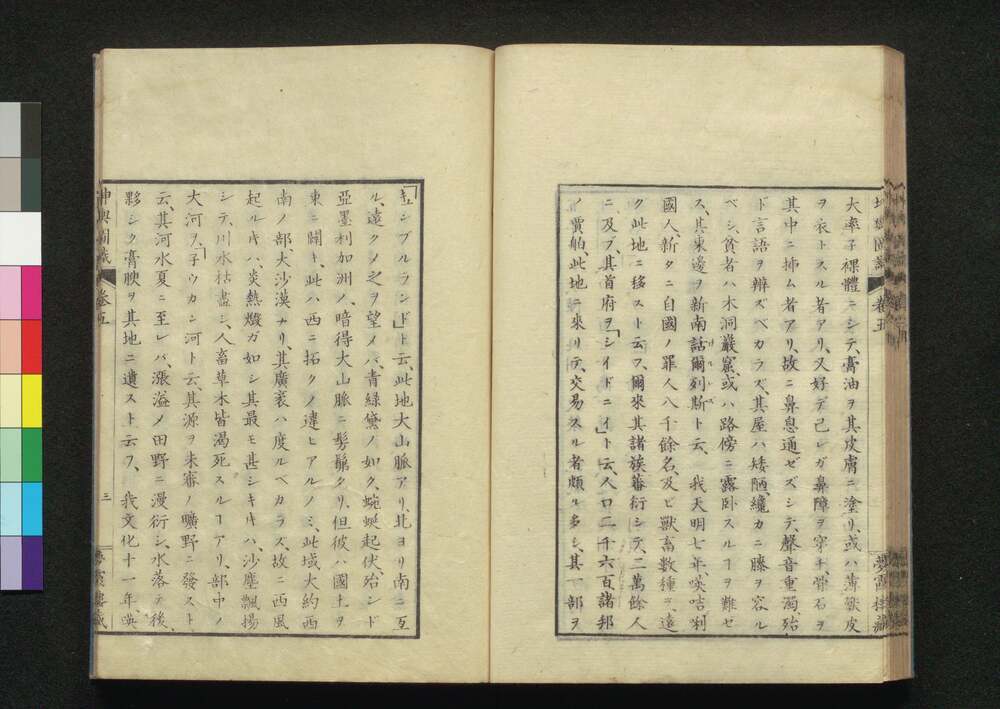 坤輿圖識 卷五
夢霞樓藏
大率子裸體ニシテ、膏油ヲ其皮膚ニ塗リ、或ハ薄獸皮
ヲ衣トスル者アリ、又好デ己レガ鼻障ヲ穿チ、骨石ヲ
其中ニ挿ム者アリ、故ニ鼻息通ゼズシテ、聲音重濁、殆
ド言語ヲ辨ズベカラズ、其屋ハ矮陋、纔カニ膝ヲ容ル
ベシ、貧者ハ木洞巖窟或ハ路傍ニ露臥スルヿヲ難ゼ
ス、其東邊ヲ新南話爾列斯ト云、我天明七年、喚咭唎
國人、新タニ自國ノ罪人八千餘名、及ビ獸畜數種ヲ、遠
ク此地ニ移スト云フ、爾來其諸族蕃衍シテ、二萬餘人
ニ及ブ、其首府ヲ「シイドニイ」ト云、人口二千六百、諸邦
ノ賈舶、此地ニ來リテ、交易スル者頗ル多シ、其一部ヲ
「キンブルランド」ト云、此地大山脈アリ、北ヨリ南ニ亙
ル、遠クノ之ヲ望メバ、青綠黛ノ如ク、蜿蜒起伏、殆ンド
亞墨利加洲ノ、暗得大山脈ニ髣髴タリ、但彼ハ國土ヲ
東ニ闢キ、此ハ西ニ拓クノ違ヒアルノミ、此域大約西
南ノ部、大沙漠ナリ、其廣袤ハ度ルベカラス、故ニ西風
起ルキハ、炎熱燬ガ如シ、其最モ甚シキキハ、沙塵飄揚
シテ、川水枯盡シ、人畜草木皆渇死スルヿアリ、部中ノ
大河ヲ、「子ウカン河ト云、其源ヲ未審ノ曠野ニ發スト
云、其河水夏ニ至レバ、漲溢ノ田野ニ漫衍シ、水落テ後、
夥シク膏腴ヲ其地ニ遺スト云フ、我文化十一年、喚
坤輿圖識 卷五
三
夢霞樓藏